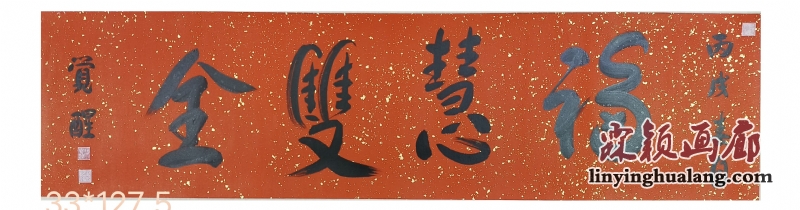 丙戌
福慧雙全
覚醒
霖颖画廊
linyinghualang.com
33*127.5